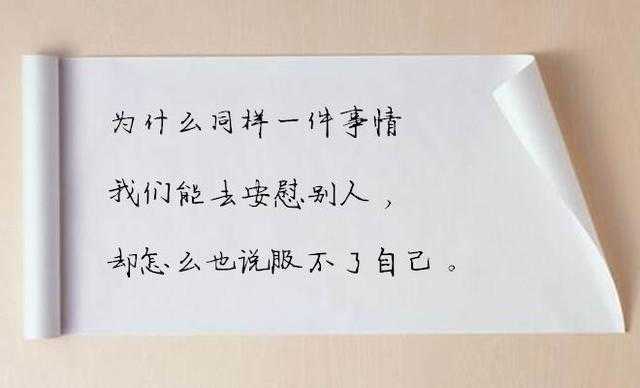 为什么同样一件事情
我们能去安慰别人，
却怎么也说服不了自己。